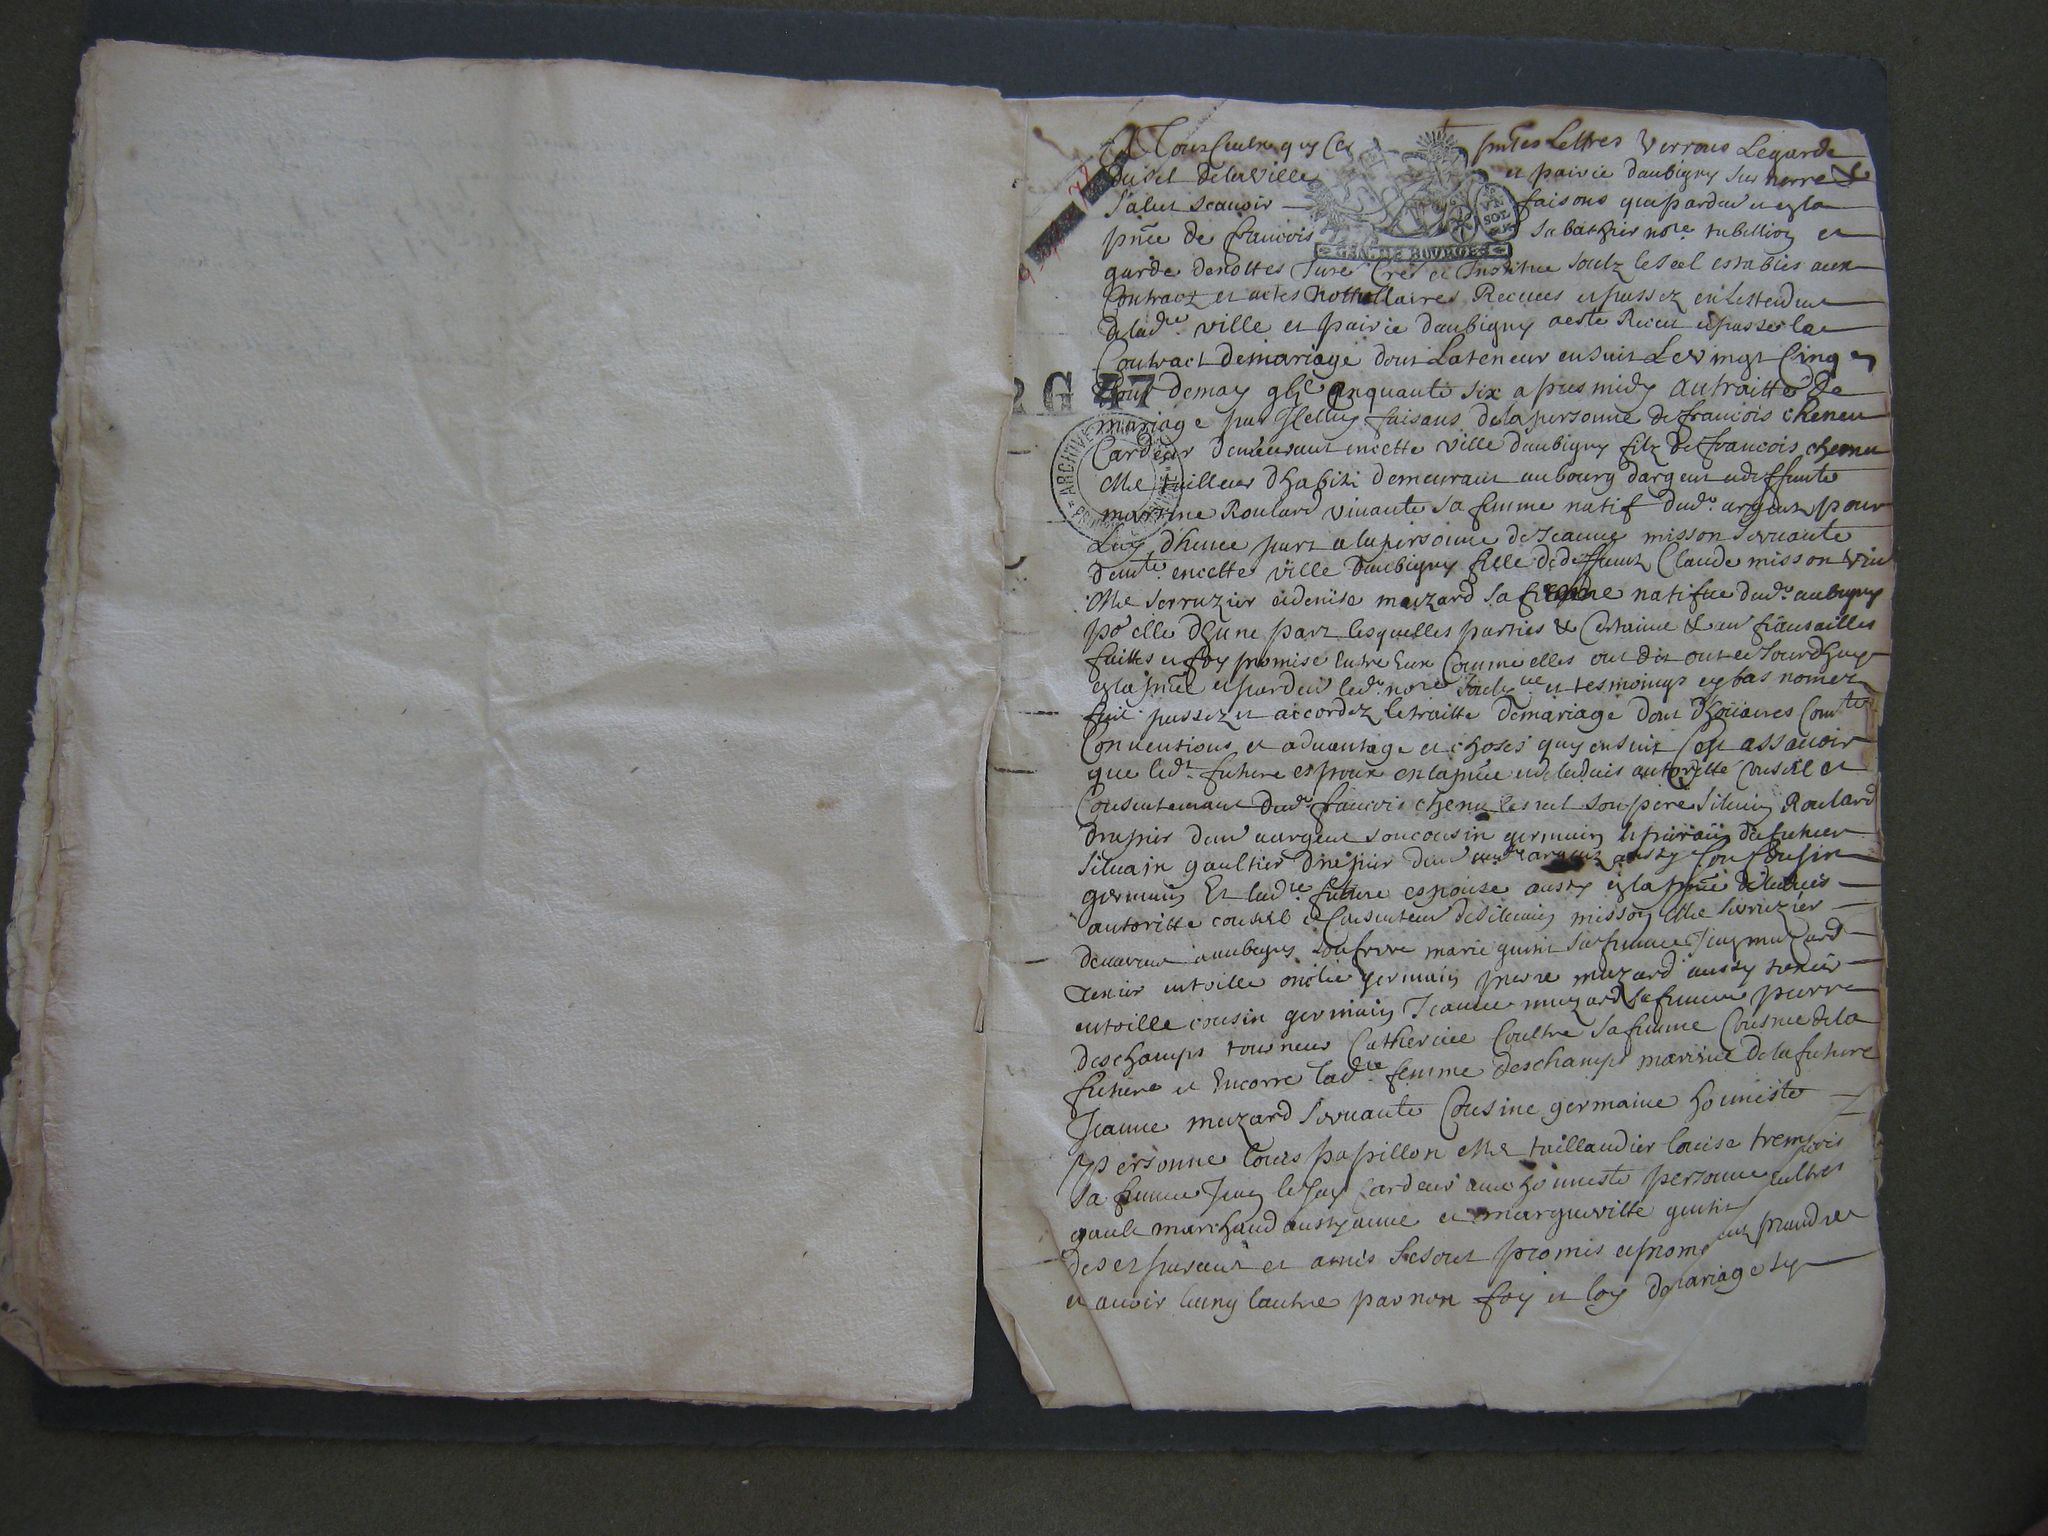 A Tous Ceulx quy Ces pñtes Lettres Verrons Legarde
du sel delaville et pairie daubigny sur nerre
Salut scauoir faisons que pardeu et en la
pñce de francois Sabathier nore. tubellion et
garde denottes Jure Cree et Institue soulz le seel establies aux
Contractz et actes Nothallaires Receues et passez en lestendue
de ladte. ville et pairie daubigny aeste Receu et passer le
Contract demariage dont Lateneur ensuit Le vingt Cinq
Jour demay gbjc Cinquante six apres midy Au traitté de
mariage par Icelluy faisans de la personne de francois cheneu
Cardeur demeurant en cette ville daubigny filz de francois chenu
Me tailleur dhabitz demeurant au bourg dargent et deffunte
martine Roulard viuante sa femme natif dudt. argent pour
Luy dhune part et la personne de Jeanne misson servante
demte. en cette ville daubigny fille de deffunt Claude misson viu
Me serruzier et denise muzard sa femme natifue dudt. aubigny
po elle dhune part lesquelles parties
faittes et foy promise Entre Eux Comme elles ont dit ont ce Jourdhuy
en la pñce et pardeu ledt. nore soulzne et tesmoings cy bas nomez
fait passez et accordez le traitte demariage dont dhouaires
Conuentions et aduantage et choses quy ensuit Cest assauoir
que ledt. future espoux en la pñce et de laduis authoritte Conseil et
Consentement dudt. francois chenu son pere Siluain Roulard
drapier dem aargent son cousin germain
Siluain gaultier drapier dem argent aussy son Cousin
germain Et ladte. future espouse aussy en la pñce de laduis
autoritte conseil et Consenteur de Silvain misson Me serruzier
demeurant aaubigny son frere marie guint sa femme Jean muzard
texier en toille oncle germain pierre muzard aussy texier
en toille cousin germain Jeanne muzard sa femme pierre
deschamps tourneur Catherine Coultre sa femme Cousine de la
future et Encorre ladte. femme deschamps marinne de la future
Jeanne muzard servante Cousine germaine honneste
personne louis papillon Me taillandier louise
sa femme Jean cardeur amy honneste personne
gault marchand aussy amie et margueritte guint
des et parans et amis Se sont promis et prendre
et auoir lung lautre par non foy et loy de mariage sy
UN SOL
GEN. DE BOURGES
2 G 47
ARCHIVES